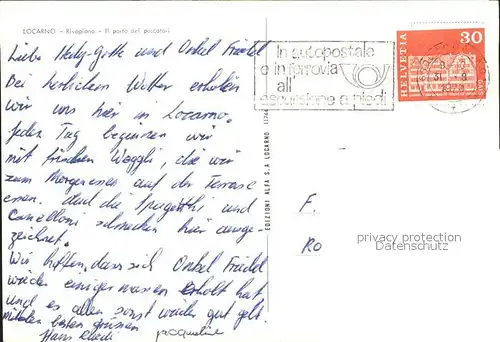 LOCARNO - Rivapiana - Il porto dei pescatori
Liebe Hedy-Gotte und Onkel Fridel
Bei herlichem Wetter erholen
wir uns hier in Locarno.
Jeden Tag beginnen wir
mit frischen Weggli, die wir
zum Morgenessen auf der Terrasse
essen. Auch die Spagetthi und
Canelloni schmecken hier ausge-
zeichnet.
Wir hoffen, dass sich Onkel Fridel
wieder einigermassen erholt hat
und es allen sonst wieder gut geht.
Mit den besten grüssen
Hans Ruedi Jacqueline
EDIZIONI ALFA S. A. LOCARNO
In autopostale
e in ferrovia
all'
escursione a piedi
HELVETIA
30
31 8
F.
Ro
privacy protection
Datenschutz